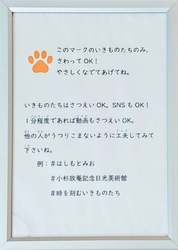 このマークのいきものたちのみ、
さわってOK！
やさしくなでてあげてね。
いきものたちはさつえいOK。SNSもOK！
1分程度であれば動画もさつえいOK。
他の人がうつりこまないように工夫してみて
下さいね。
例：＃はしもとみお
＃小杉放菴記念日光美術館
＃時を刻むいきものたち